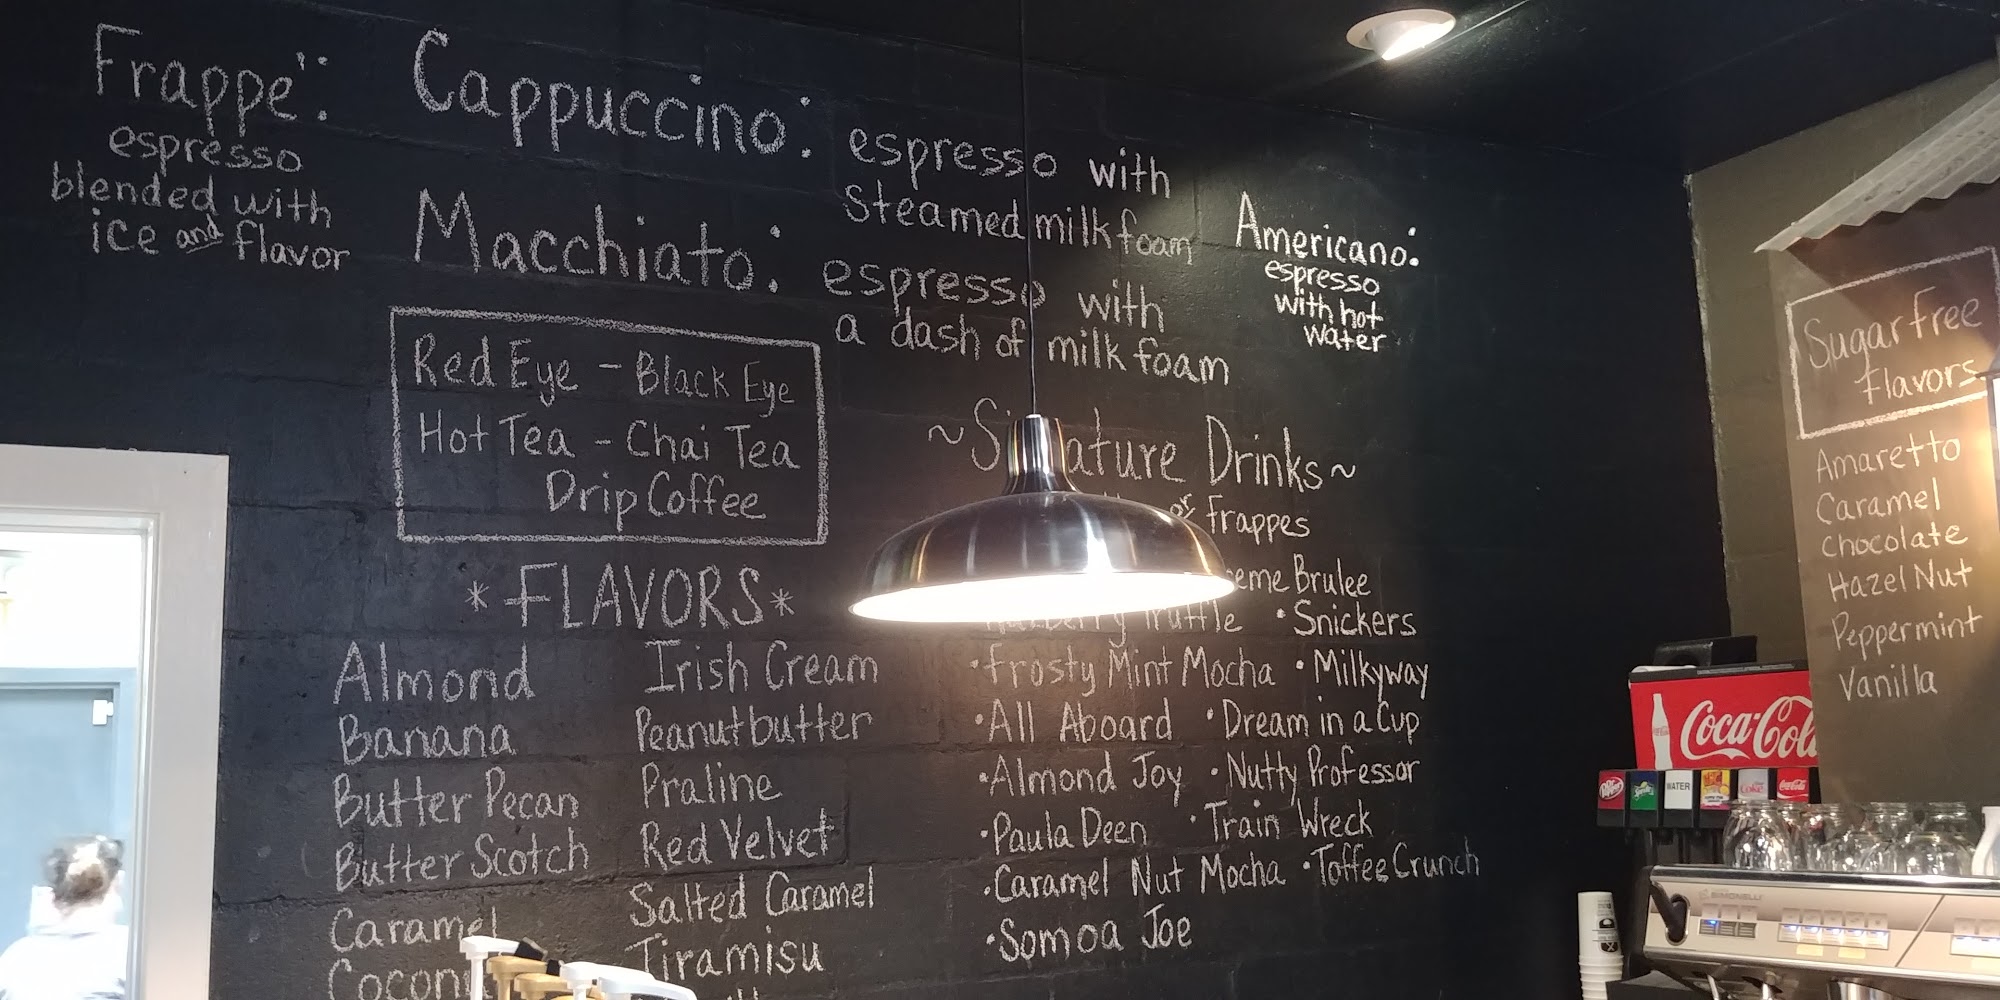 Frappe':
espresso
blended with
ice and flavor
Cappuccino: espresso with
steamed milk foam
Macchiato: espresso with
a dash of milk foam
Americano:
espresso
with hot
water
Red Eye - Black Eye
Hot Tea - Chai Tea
Drip Coffee
*FLAVORS*
Almond
Banana
Butter Pecan
Butter Scotch
Caramel
Irish Cream
Peanutbutter
Praline
Red Velvet
Salted Caramel
Tiramisu
Drinks~
or Frappes
Brulee
Truffle • Snickers
• Frosty Mint Mocha • Milkyway
• All Aboard • Dream in a Cup
• Almond Joy • Nutty Professor
• Paula Deen • Train Wreck
• Caramel Nut Mocha • Toffee Crunch
• Somoa Joe
Sugar Free
Flavors
Amaretto
Caramel
Chocolate
Hazel Nut
Peppermint
Vanilla
Coca-Cola
Sprite
WATER
Coke
Coca-Cola
SIMONELLI